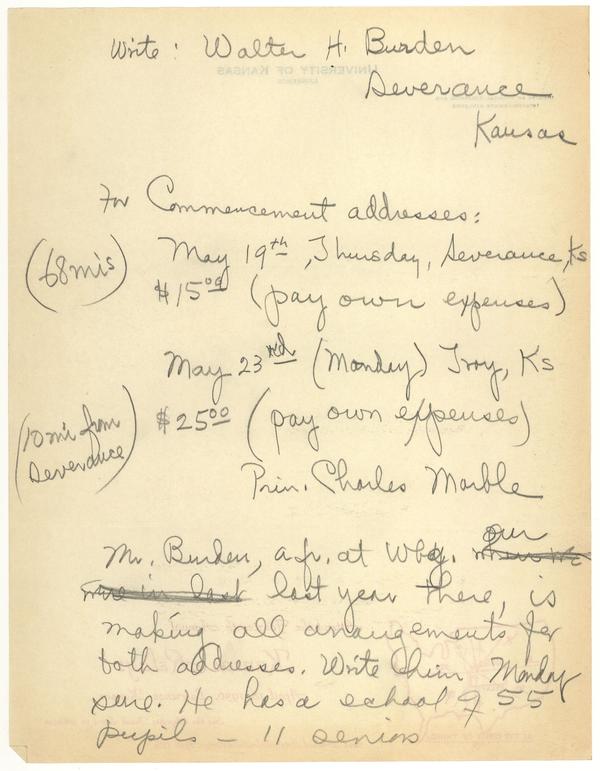 Write: Walter H. Burden
Severance
Kansas
For Commencement addresses:
(68 mis)
May 19th, Thursday, Severance, Ks
$15.00 (pay own expenses)
May 23rd (Monday) Troy, Ks
(10 mi from
Severance)
$25.00 (pay own expenses)
Prin. Charles Marble
Mr. Burden, a jr. at Wbg. our
last year there, is
making all arrangements for
both addresses. Write him Monday
sure. He has a school of 55
pupils - 11 seniors
UNIVERSITY OF KANSAS
LAWRENCE